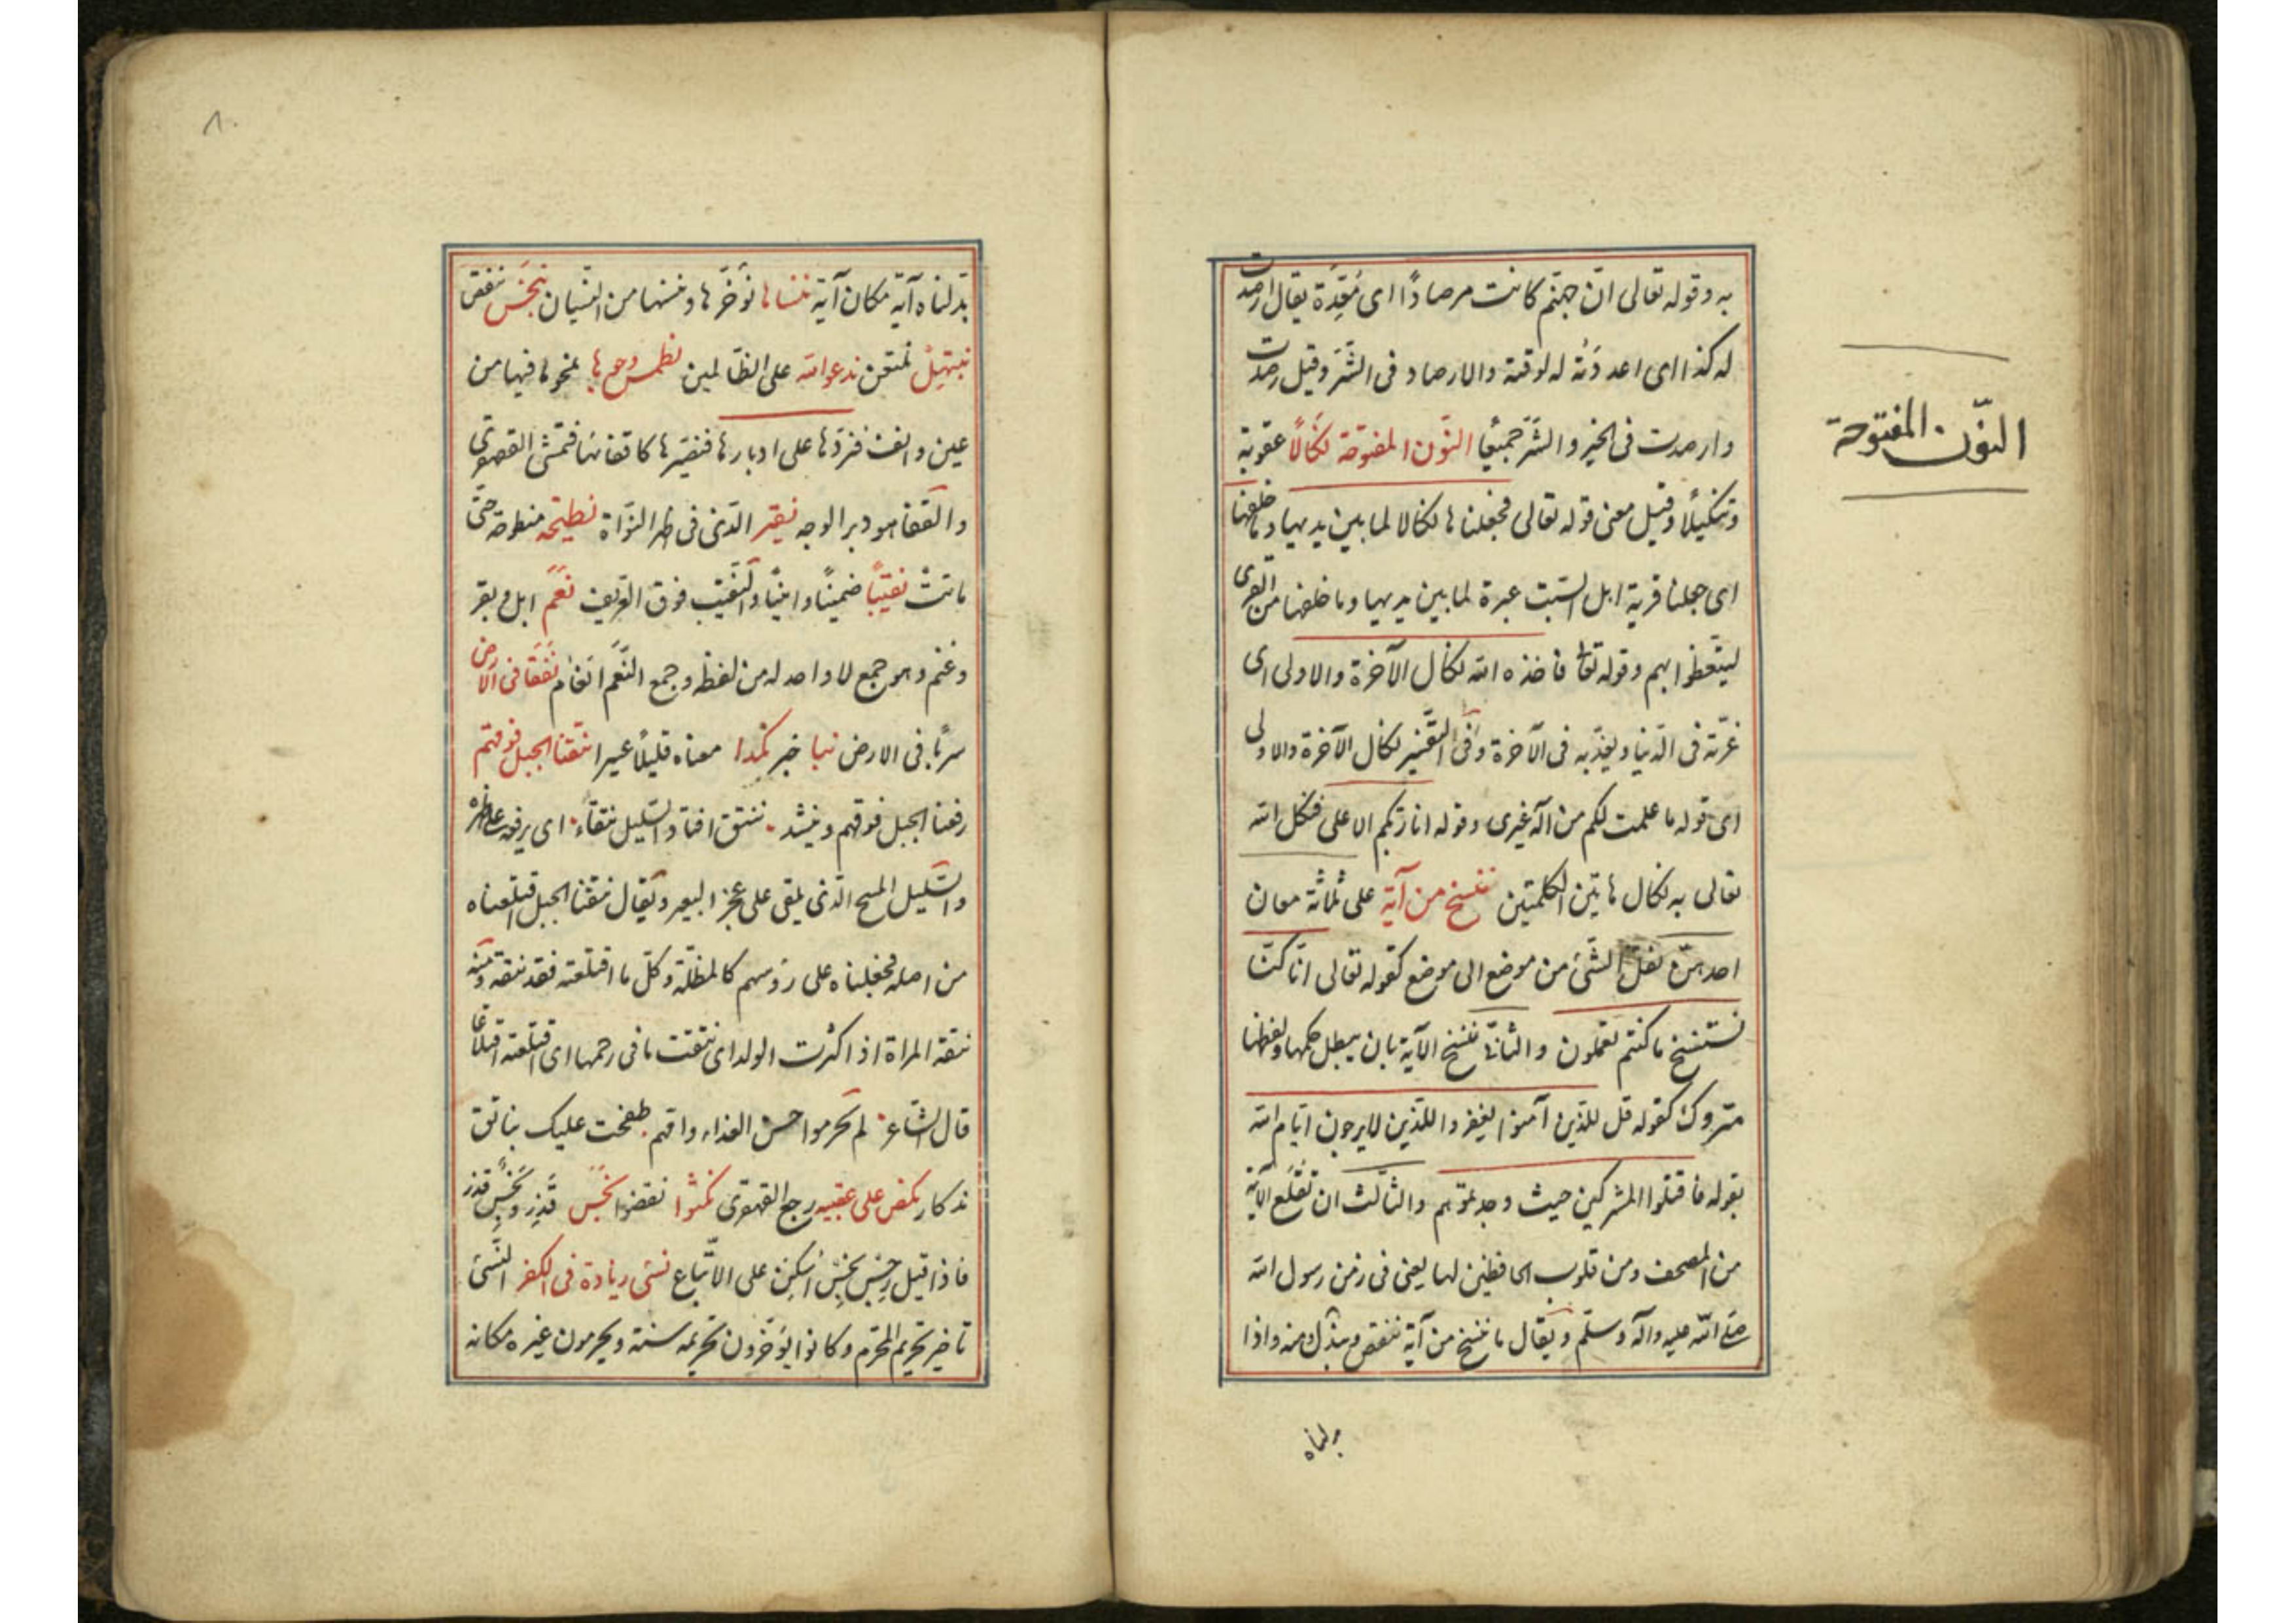 به وقوله تعالى انّ جهنّم كانت مرصادًا اى مُعَدَّة يقال ارصدت
له كذا اى اعددته له لوقته والارصاد فى الشّرّ وقيل رصدت
وارصدت فى الخير والشّرّ جميعًا النّون المفتوحة نَكَالًا عقوبة
وتنكيلًا وقيل معنى قوله تعالى فجعلناها نكالا لما بين يديها وما خلفها
اى جعلنا قرية اهل السّبت عبرة لما بين يديها وما خلفها من القرى
ليتّعظوا بهم وقوله تعا فاخذه الله نكال الآخرة والاولى اى
غرّقه فى الدّنيا ويعذّبه فى الآخرة وفى التّفسير نكال الآخرة والاولى
اى قوله ما علمت لكم من اله غيرى وقوله انا ربّكم الاعلى فنكل الله
تعالى به نكال هاتين الكلمتين ننسخ من آية على ثلاثة معان
احدهنّ نقل الشّئ من موضع الى موضع كقوله تعالى انّا كنّا
نستنسخ ما كنتم تعملون والثانى ننسخ الآية بان يبطل حكمها ولفظها
متروك كقوله قل للّذين آمنوا يغفروا للّذين لا يرجون ايّام الله
بقوله فاقتلوا المشركين حيث وجدتموهم والثالث ان تُقلع الآية
من المصحف ومن قلوب الحافظين لها يعنى فى زمن رسول الله
صلّى الله عليه وآله وسلّم ويقال ما ننسخ من آية ننقص ونبدّل ومنه واذا
بدلناه
النّون المفتوحة
٨٠
بدّلناه آية مكان آية ننساها نؤخّرها وننسها من النّسيان نبخس ننقص
نبتهل نلتعن ندعو الله على الظّالمين نطمس وجوها نمحو ما فيها من
عين وانف فنردّها على ادبارها فنصيّرها كاقفائها فتمشى القهقرى
والقفا هو دبر الوجه نقير الذى فى ظهر النّواة نطيحة منطوحة حتّى
ماتتْ نقيبًا ضمينًا وامينًا والنّقيب فوق العريف نَعَم ابل وبقر
وغنم وهو جمع لا واحد له من لفظه وجمع النَّعَم انعام نَفَقًا فى الارض
سربًا فى الارض نبأ خبر نكدا معناه قليلًا عسيرا نتقنا الجبل فوقهم
رفعنا الجبل فوقهم وينشد ٠ ننتق اقتاد السّليل نتقاء ٠ اى يرفعه على ظهره
والسّليل المسح الذى يلقى على عجز البعير ويقال نتقنا الجبل اقتلعناه
من اصله فجعلناه على رؤسهم كالمظلّة وكلّ ما اقتلعته فقد نتقته ومنه
نتقت المراة اذا اكثرت الولد اى نتقت ما فى رحمها اى اقتلعته اقتلاعًا
قال الشّاعر ٠ لم يحرموا حسن الغذاء وامّهم ٠ طفحت عليك بناتق
مذكار نكص على عقبيه رجع القهقرى نكثوا نقضوا نَجَس قَذِر ونَجِس قذر
فاذا قيل رِجْس نِجْس اُسْكِن على الاتّباع نسئ زيادة فى الكفر النّسئ
تاخير تحريم المحرّم وكانوا يؤخّرون تحريمه سنة ويحرمون غيره مكانه